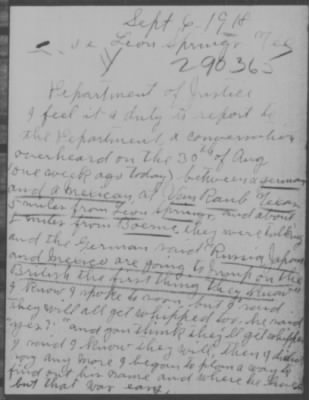 Sept 6 - 1918
Leon Springs Tex
290365
Department of Justice
I feel it a duty to report to
the Department, a conversation
overheard on the 30th of Aug
(one week ago today) between a German
and a Mexican, at Van Raub Texas
5 miles from Leon Springs, and about
5 miles from Boerne, they were talking
and the German said "Russia, Japan
and Mexico are going to jump on the
British the first thing they know"
I know I spoke to soon, but I said
They will all get whipped too, he said
"yes?" and you think they'll get whipped
I said I know they will, then I didn't
say any more I began to plan a way to
find out his name and where he lived
but that was easy,